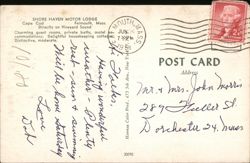 SHORE HAVEN MOTOR LODGE
Cape Cod Falmouth, Mass.
Directly on Vineyard Sound
Charming guest rooms, private baths, motel accommodations. Delightful housekeeping cottages.
Distinctive, moderate.
FALMOUTH, MASS.
JUN
POST CARD
Address
Folks,
Having wonderful
weather - Plenty
rest - sun & swimming
Will be home Saturday
Love
Dad
Mr. & Mrs. John Morris
289 Fuller St.
Dorchester 24, Mass